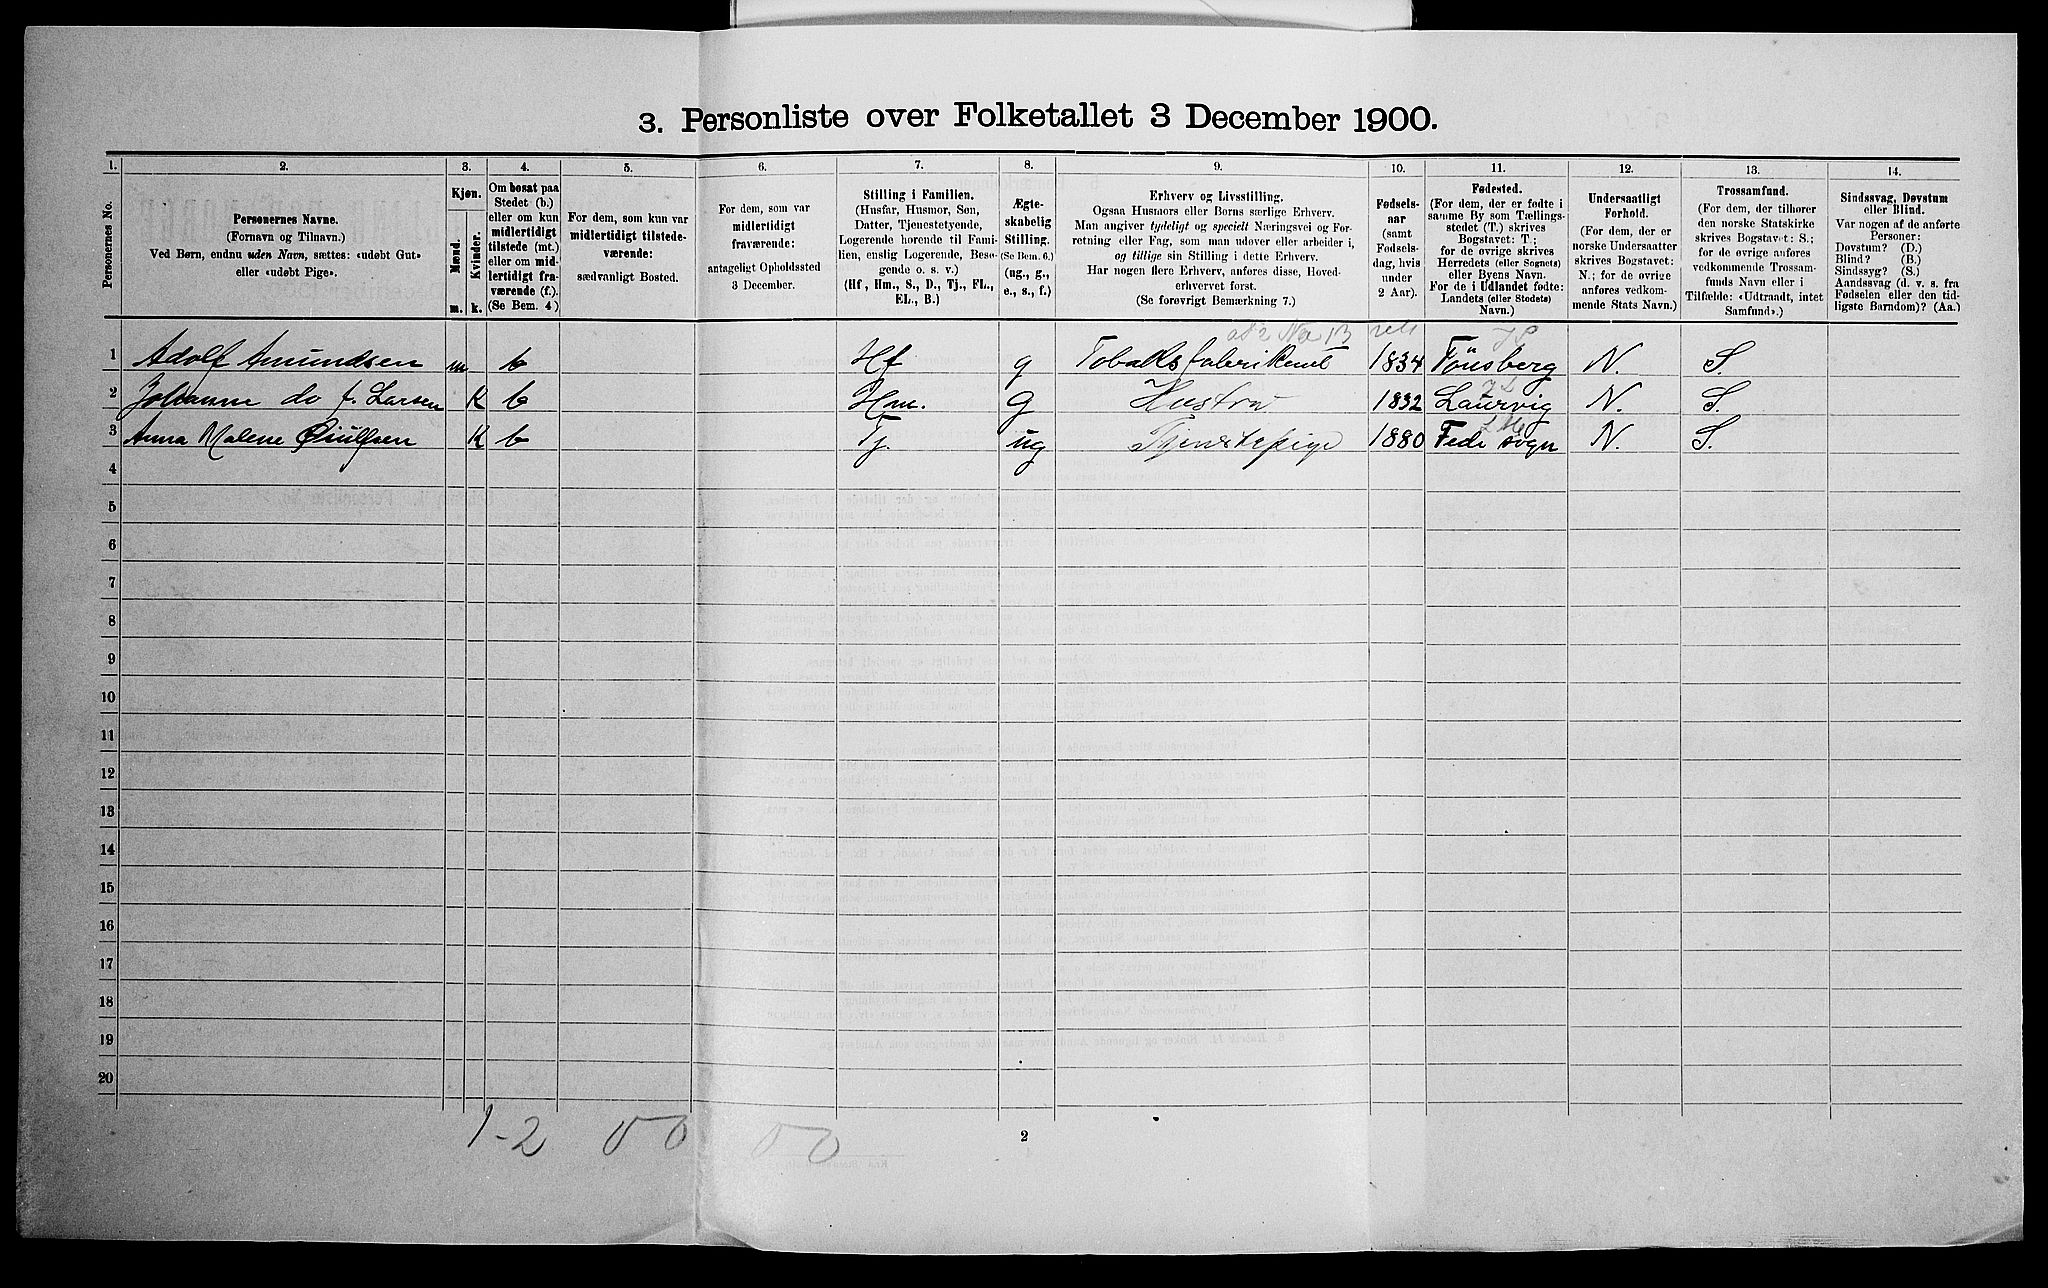 3. Personliste over Folketallet 3 December 1900.
1. 2. 3. 4. 5. 6. 7. 8. 9. 10. 11. 12. 13. 14.
Personernes No.
Personernes Navne.
(Fornavn og Tilnavn.)
Ved Børn, endnu uden Navn, sættes: «udøbt Gut»
eller «udøbt Pige».
Kjøn.
Mænd.
Kvinder.
m. k.
Om bosat paa
Stedet (b.)
eller om kun
midlertidigt
tilstede (mt.)
eller om mid-
lertidigt fra-
værende (f.).
(Se Bem. 4.)
For dem, som kun var
midlertidigt tilstede-
værende:
sædvanligt Bosted.
For dem, som var
midlertidigt
fraværende:
antageligt Opholdssted
3 December.
Stilling i Familien.
(Husfar, Husmor, Søn,
Datter, Tjenestetyende,
Logerende hørende til Fami-
lien, enslig Logerende, Besø-
gende o. s. v.)
(Hf., Hm., S., D., Tj., FL.,
EL., B.)
Ægte-
skabelig
Stilling.
(Se Bem. 6.)
(ug., g.,
e., s., f.)
Erhverv og Livsstilling.
Ogsaa Husmors eller Børns særlige Erhverv.
Man angiver tydeligt og specielt Næringsvei og For-
retning eller Fag, som man udøver eller arbeider i,
og tillige sin Stilling i dette Erhverv.
Har nogen flere Erhverv, anføres disse, Hoved-
erhvervet først.
(Se forøvrigt Bemærkning 7.)
Fødsels-
aar
(samt
Fødsels-
dag, hvis
under
2 Aar).
Fødested.
(For dem, der er fødte i
samme By som Tællings-
stedet (T.) skrives
Bogstavet: T.;
for de øvrige skrives
Herredets (eller Sognets)
eller Byens Navn.
For de i Udlandet fødte:
Landets (eller Stedets)
Navn.)
Undersaatligt
Forhold.
(For dem, der er
norske Undersaatter
skrives Bogstavet:
N.; for de øvrige
anføres vedkom-
mende Stats Navn.)
Trossamfund.
(For dem, der tilhører
den norske Statskirke
skrives Bogstavet: S.;
for de øvrige anføres
vedkommende Trossam-
funds Navn eller i
Tilfælde: «Udtraadt, intet
Samfund».)
Sindssvag, Døvstum
eller Blind.
Var nogen af de anførte
Personer:
Døvstum? (D.)
Blind? (B.)
Sindssyg? (S.)
Aandssvag (d. v. s. fra
Fødselen eller den tid-
ligste Barndom)? (Aa.)
1 Adolf Amundsen m b Hf g Tobaksfabrikant 1834 Tönsberg N. S.
2 Johanne do f. Larsen K b Hm. g Hustru 1832 Laurvig N. S.
3 Anna Malene Øiulfsen K b Tj. ug Tjenestepige 1880 Fede sogn N. S.
4
5
6
7
8
9
10
11
12
13
14
15
16
17
18
19
20
1-2 0 0 0 0
2